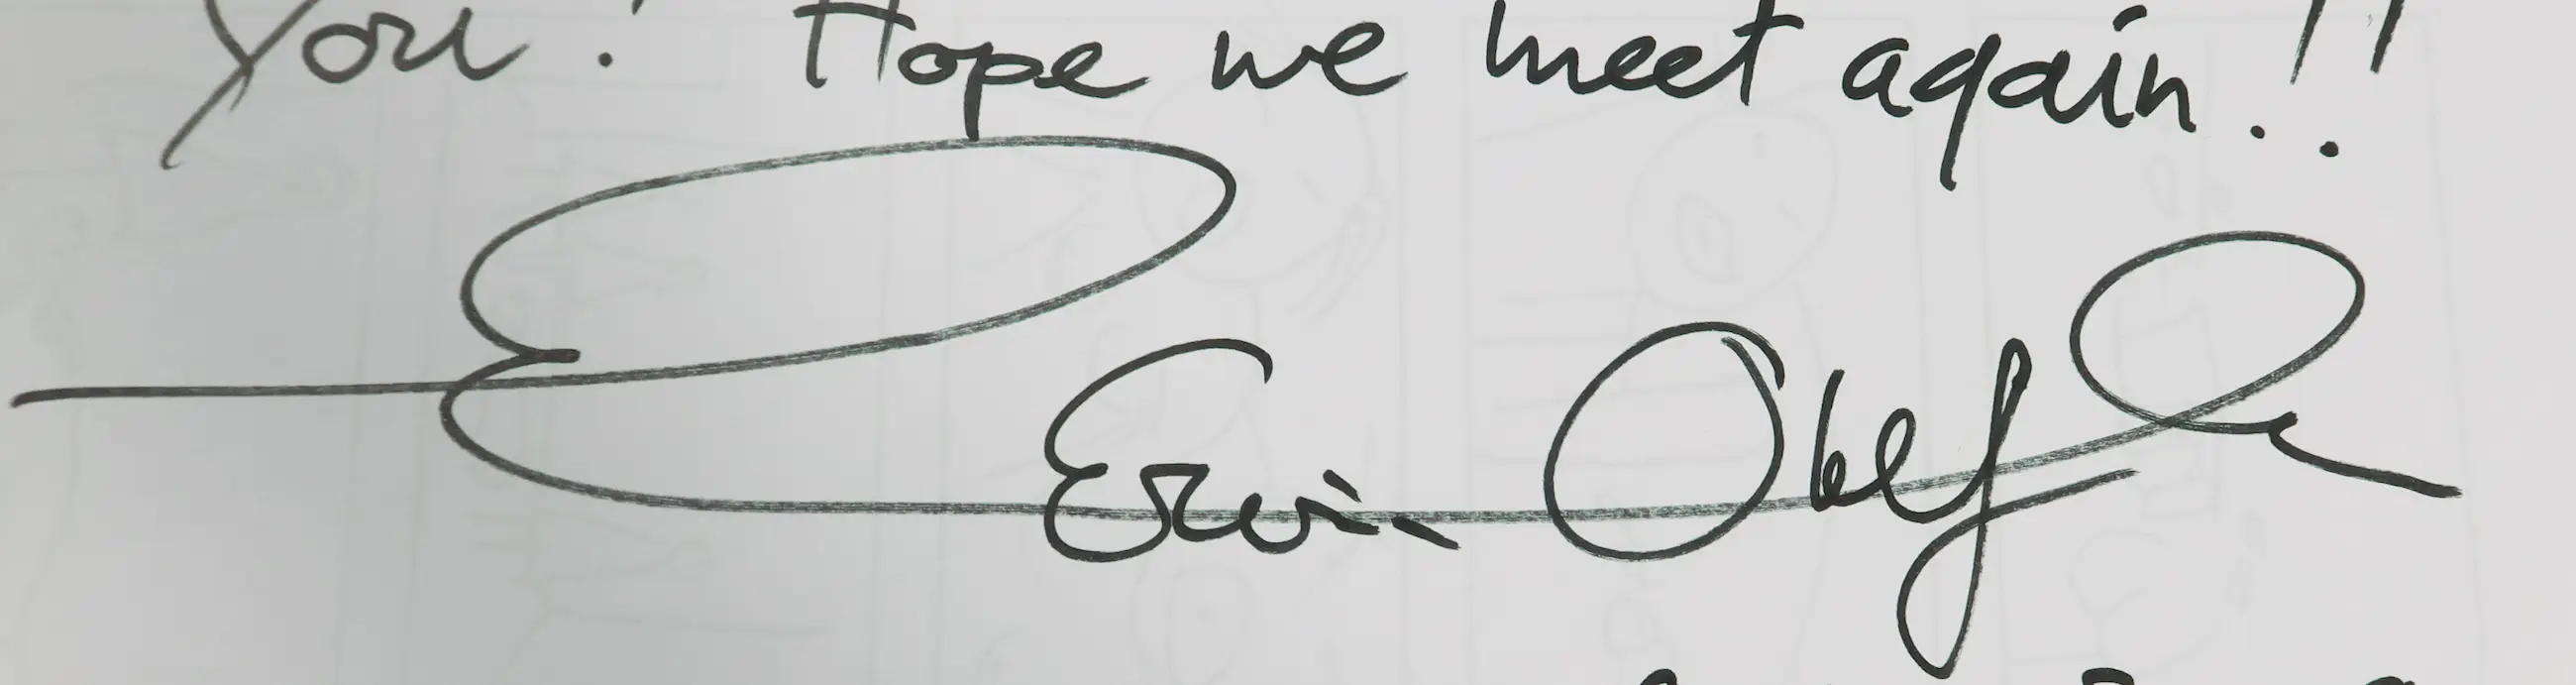 you! Hope we meet again!!
Erwin Olaf